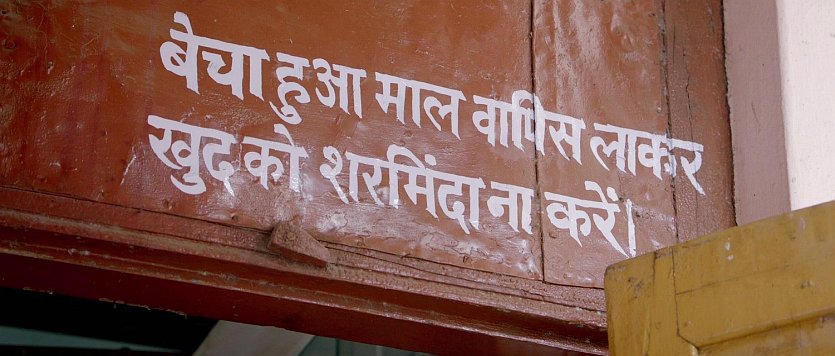 बेचा हुआ माल वापिस लाकर
खुद को शरमिंदा ना करें।